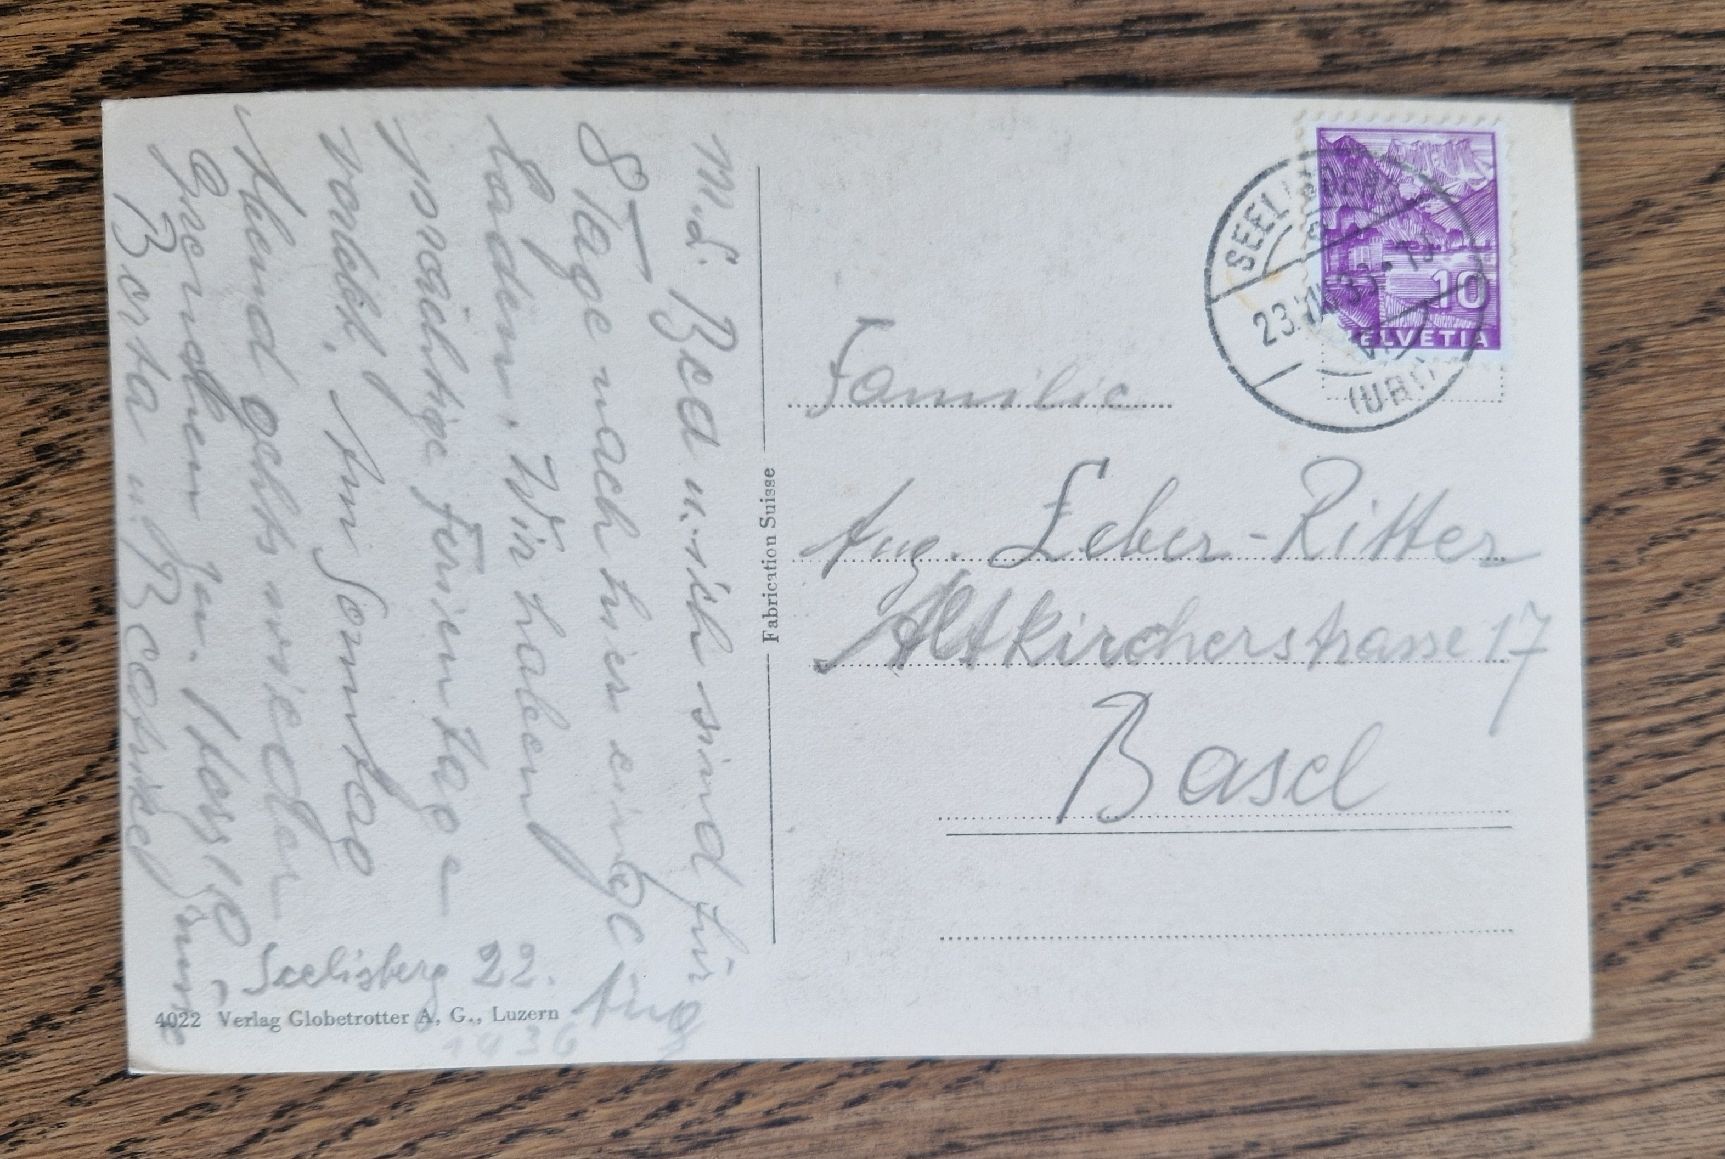 Seelisberg 22. Aug
1936
M. L. Bea u. ich sind für
8 Tage nach hier eingе
laden. Wir haben
prächtige Ferientage
verlebt. Am Sonntag
Abend gehts wieder
Grenchen zu. Herzl.
Berta u.
Familie
Aug. Leber-Ritter
Altkircherstrasse 17
Basel
Fabrication Suisse
4022 Verlag Globetrotter A. G., Luzern
10
HELVETIA
SEELISBERG
23.VIII.36
(URI)